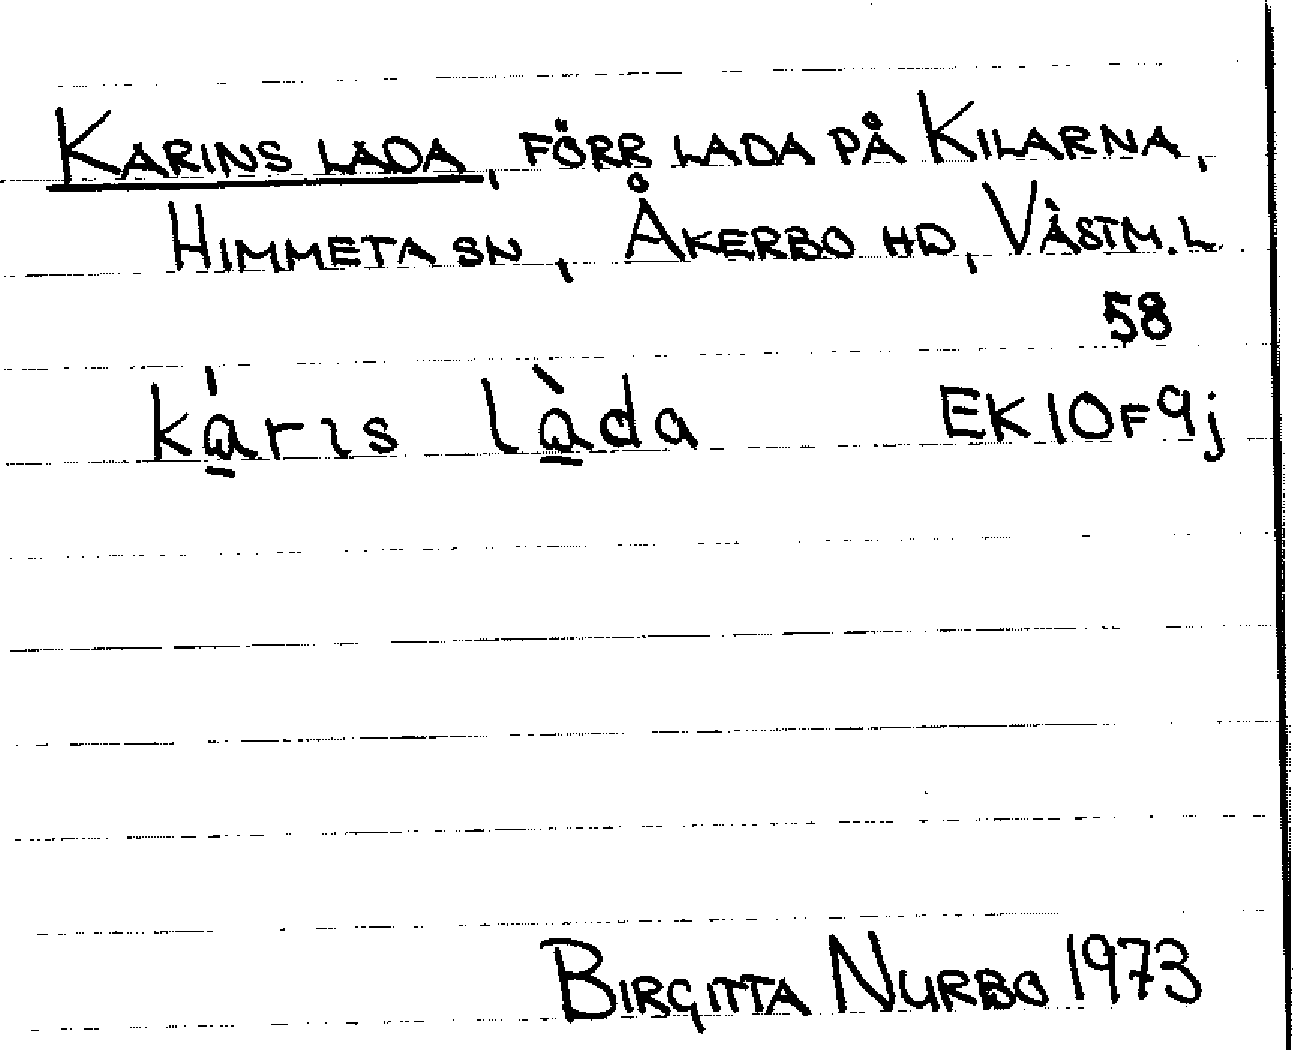 KARINS LADA, FÖRR LADA PÅ KILARNA,
HIMMETA SN, ÅKERBO HD, VÄSTM. L
58
ká̱rɩs là̱da EK10F9j
BIRGITTA NURBO 1973